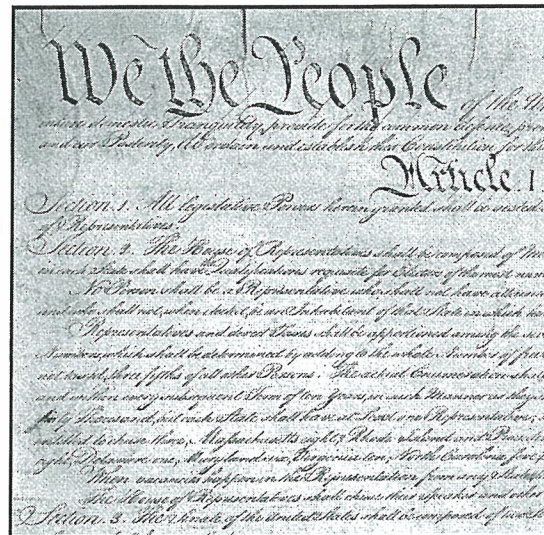 We the People of the Un
insure domestic Tranquility, provide for the common defence, prom
and our Posterity, do ordain and establish this Constitution for the
Article. I.
Section. 1. All legislative Powers herein granted shall be vested
of Representatives.
Section. 2. The House of Representatives shall be composed of Mem
in each State shall have the Qualifications requisite for Electors of the most num
No Person shall be a Representative who shall not have attained
and who shall not, when elected, be an Inhabitant of that State in which he
Representatives and direct Taxes shall be apportioned among the seve
Numbers, which shall be determined by adding to the whole Number of free
not taxed, three fifths of all other Persons. The actual Enumeration shall
and within every subsequent Term of ten Years, in such Manner as they
thirty Thousand, but each State shall have at Least one Representative;
entitled to chuse three, Massachusetts eight, Rhode Island and Provid
eight, Delaware one, Maryland six, Virginia ten, North Carolina five
When vacancies happen in the Representation from any State
The House of Representatives shall chuse their Speaker and other
Section. 3. The Senate of the United States shall be composed of two